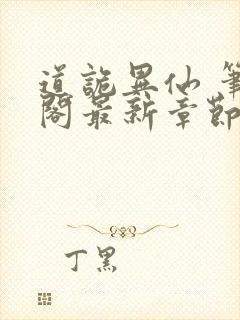 道詭異仙 筆
閣最新章節
丁黑